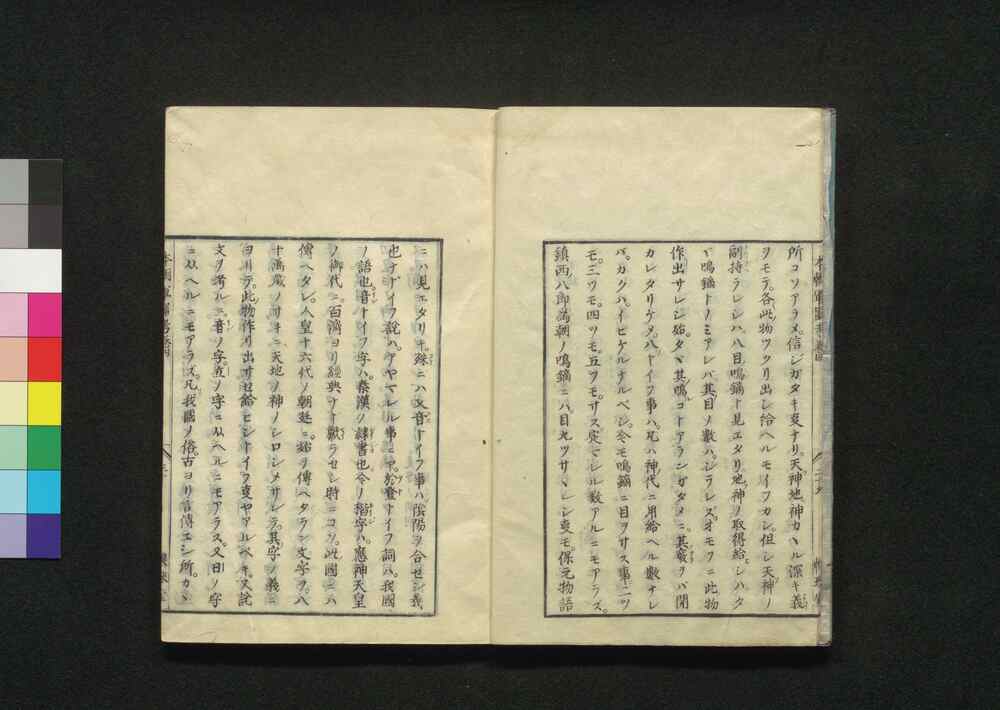 所コソアラメ。信ジガタキ叓ナリ。天神地神カヽル深キ義
ヲモテ。各此物ツクリ出シ給ヘルモイフカシ。但シ天神ノ
副持ラレシハ。八目鳴鏑ト見エタリ。地神ノ取得給シハ。タ
ヾ鳴鏑トノミアレバ。其目ノ數ハシラレズ。オモフニ此物
作出サレシ始。タヾ其鳴コトアランガタメニ。其竅ヲバ開
カレタリケメ。八トイフ事ハ。凡ハ神代ニ用給ヘル數ナレ
バ。カクハイヒケルナルベシ。今モ鳴鏑ニ目ヲサス事。二ツ
モ。三ツモ。四ツモ。五ツモ。サス定マレル數アルニモアラズ。
鎮西八郎為朝ノ鳴鏑ニ。八目九ツサヽレシ叓モ。保元物語
ニハ見エタリキ。殊ニハ文音トイフ事ハ。陰陽ヲ合セシ義
也ナドイフ説ハ。アヤマレル事ニヤ。於登トイフ詞ハ。我國
ノ語也。音トイフ字ハ。秦漢ノ隸書也。今ノ楷字ハ。應神天皇
ノ御代ニ。百濟ヨリ經典ナド獻ラセシ時ニコソ。此國ニハ
傳ヘタレ。人皇十六代ノ朝廷ニ。始テ傳ヘタラン文字ヲ。八
十萬歳ノサキニ。天地ノ神ノシロシメサレテ。其字ノ義ニ
ヨリテ。此物作リ出サセ給ヒシトイフ叓ヤアルベキ。又説
文ヲ考ルニ。音ノ字。立ノ字ニ从ヘルニモアラス。又日ノ字
ニ从ヘルニモアラズ。凡我國ノ俗。古ヨリ言傳エシ所。カヽ